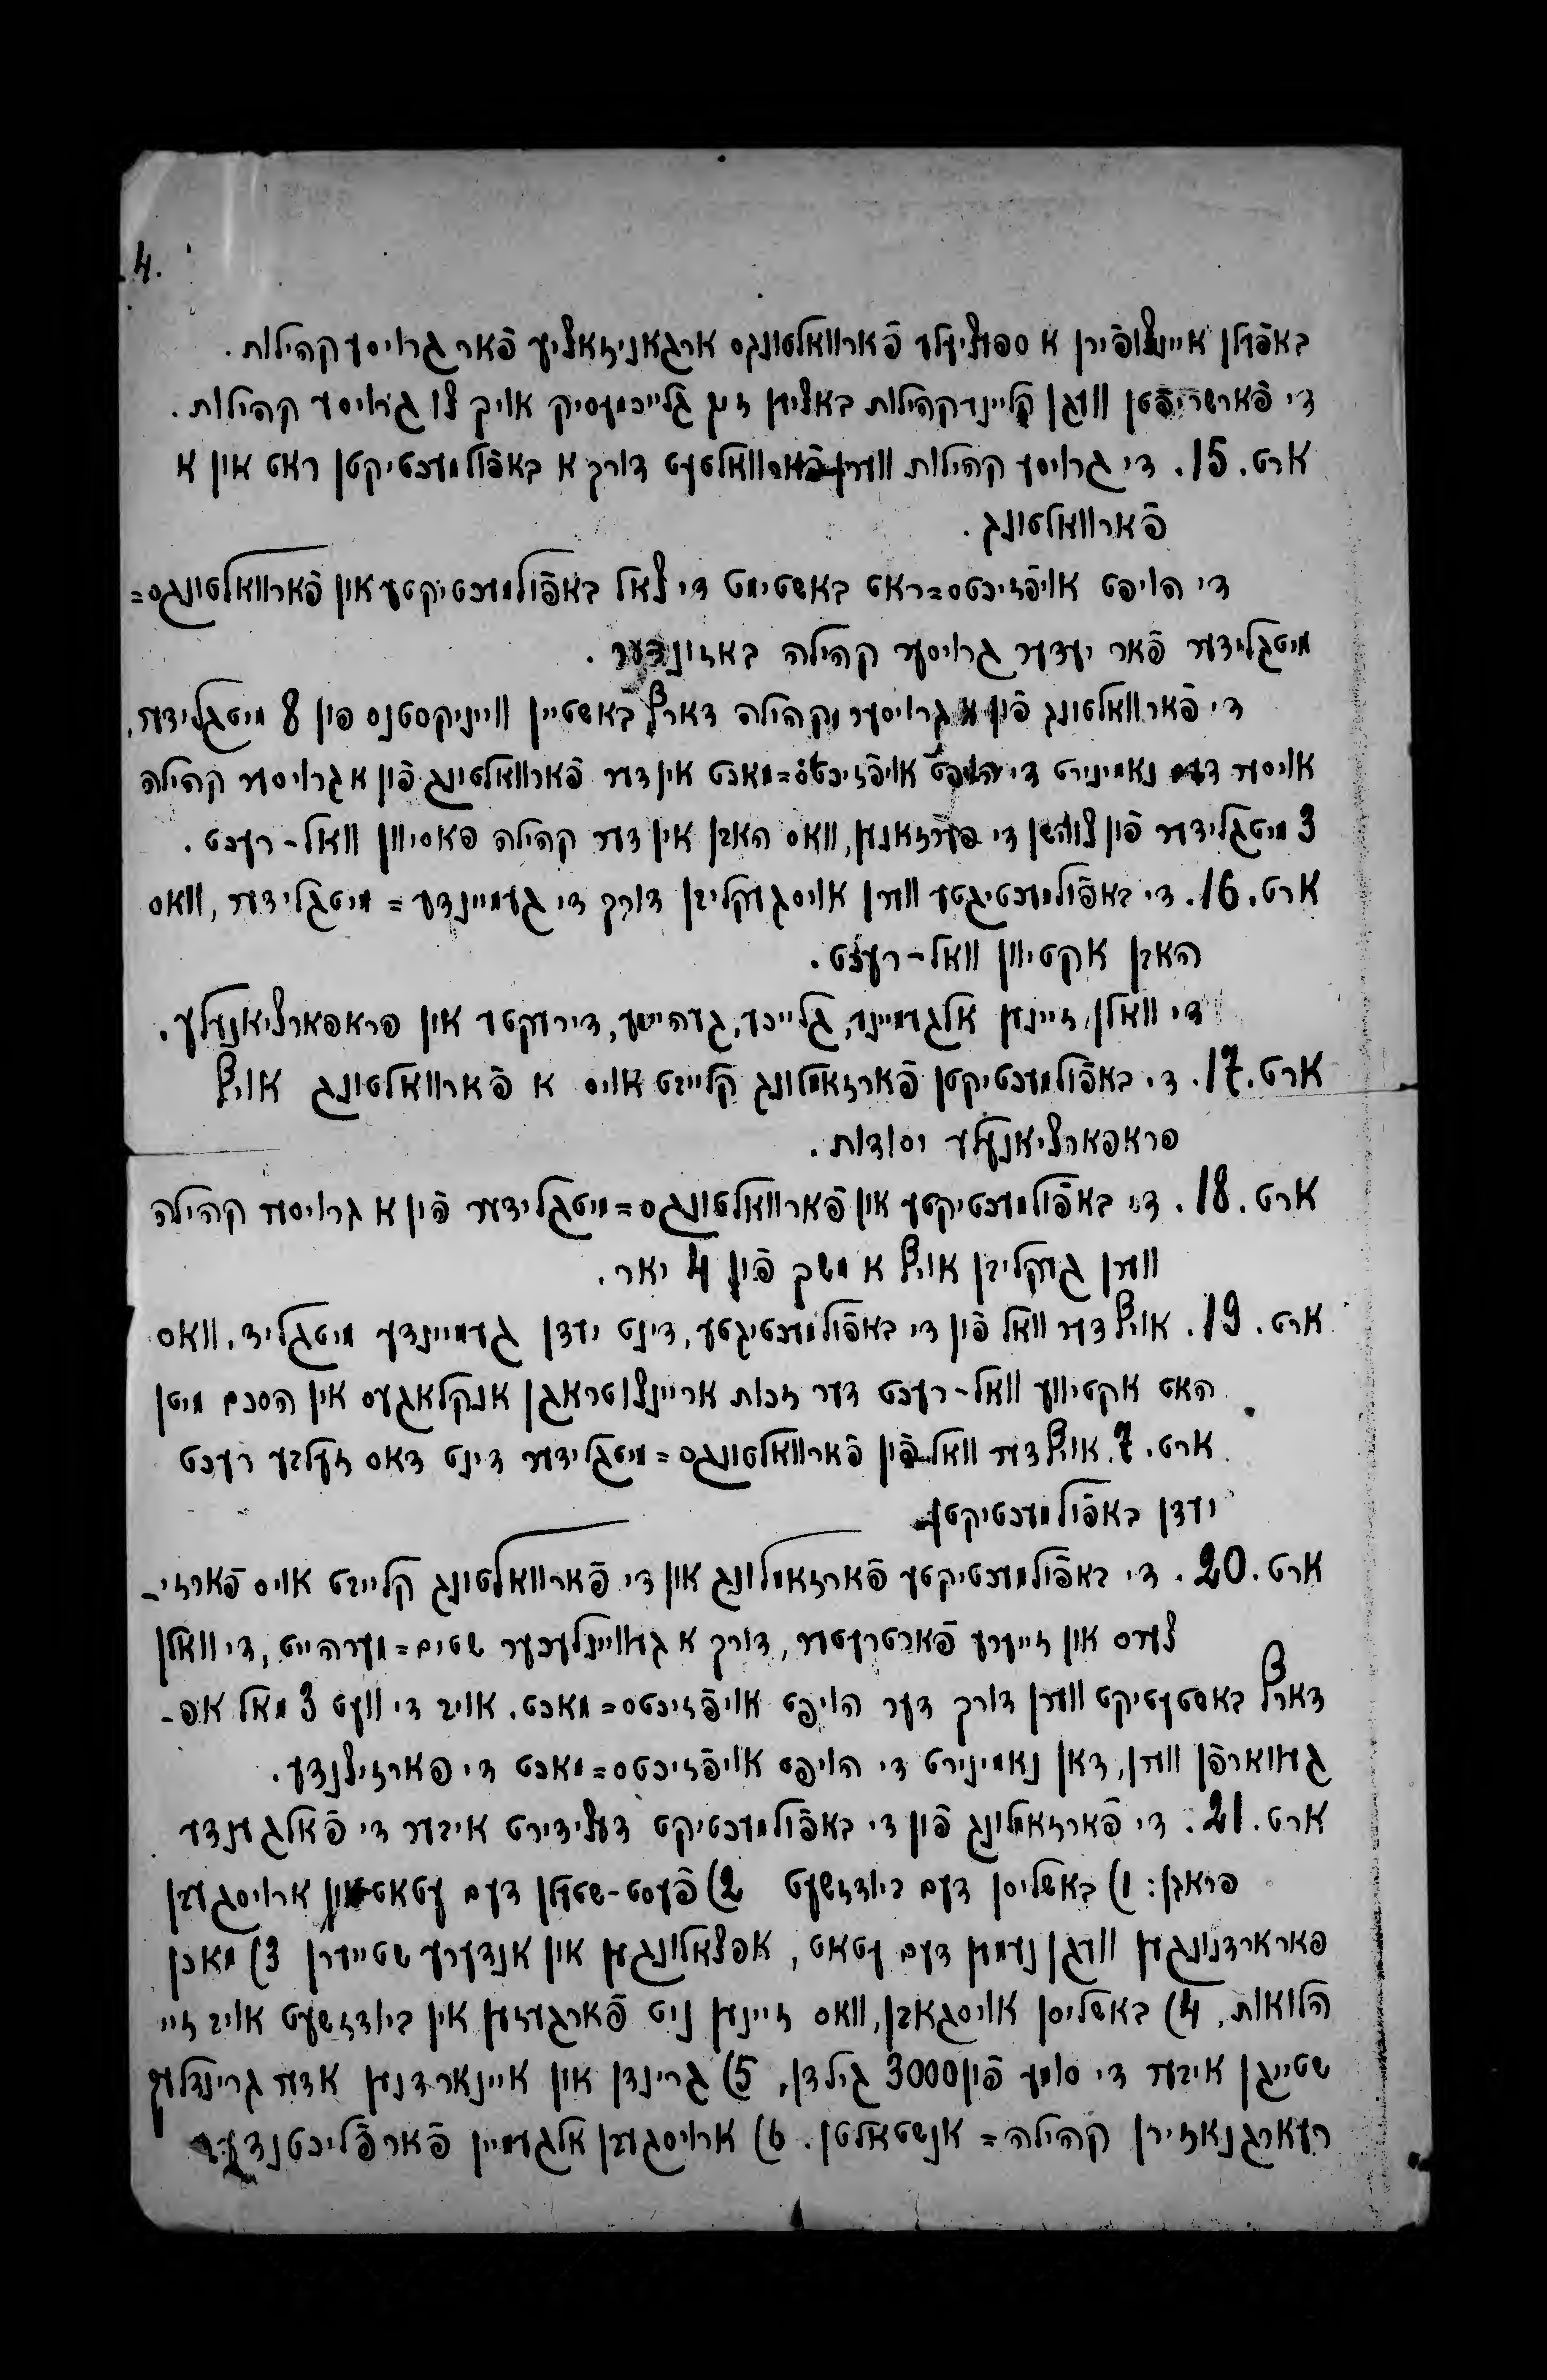 4.
באפֿעלן איינצופֿירן א ספעציעלע פֿארוואלטונגס ארגאניזאציע פֿאר גרויסע קהילות.
די פֿארשריפֿטן וועגן קליינע קהילות באציען זיך גלייכמעסיק אויך צו גרויסע קהילות.
ארט. 15. די גרויסע קהילות ווערן פֿארוואלטעט דורך א באפֿולמעכטיקטן ראט און א
פֿארוואלטונג.
די הויפט אויפֿזיכטס=ראט באשטימט די צאל באפֿולמעכטיקטע און פֿארוואלטונגס=
מיטגלידער פֿאר יעדער גרויסער קהילה באזונדער.
די פֿארוואלטונג פֿון א גרויסער קהילה דארף באשטיין ווייניקסטנס פון 8 מיטגלידער,
אויסער דעם נאמינירט די הויפט אויפֿזיכטס=מאכט אין דער פֿארוואלטונג פֿון א גרויסער קהילה
3 מיטגלידער פֿון צווישן די פערזאנען, וואס האבן אין דער קהילה פאסיוון וואל-רעכט.
ארט. 16. די באפֿולמעכטיגטע ווערן אויסגעקליבן דורך די געמיינדע=מיטגלידער, וואס
האבן אקטיוון וואל-רעכט.
די וואלן זיינען אלגעמיינע, גלייכע, געהיימע, דירעקטע און פראפארציאנעלע.
ארט. 17. די באפֿולמעכטיקטן פֿארזאמלונג קלייבט אויס א פֿארוואלטונג אויף
פראפארציאנעלע יסודות.
ארט. 18. די באפֿולמעכטיקטע און פֿארוואלטונגס=מיטגלידער פֿון א גרויסער קהילה
ווערן געקליבן אויף א משך פֿון 4 יאר.
ארט. 19. אויף דער וואל פֿון די באפֿולמעכטיגטע, דינט יעדן געמיינדע מיטגליד, וואס
האט אקטיווע וואל-רעכט דער זכות אריינצוטראגן אנקלאגעס אין הסכם מיטן
ארט. 7. אויף דער וואל פֿון פֿארוואלטונגס=מיטגלידער דינט דאס זעלבע רעכט
יעדן באפֿולמעכטיקטן
ארט. 20. די באפֿולמעכטיקטע פֿארזאמלונג און די פֿארוואלטונג קלייבט אויס פֿארזי-
צערס און זייערע פֿארטרעטער, דורך א געוויינלעכער שטים=מערהייט, די וואלן
דארף באסטעטיקט ווערן דורך דער הויפט אויפֿזיכטס=מאכט. אויב די וועט 3 מאל אפ-
געווארפֿן ווערן, דאן נאמינירט די הויפט אויפֿזיכטס=מאכט די פארזיצנדע.
ארט. 21. די פֿארזאמלונג פֿון די באפֿולמעכטיקט דעצידירט איבער די פֿאלגענדע
פראגן: 1) באשליסן דעם בידזשעט 2) פֿעסט-שטעלן דעם עטאט און ארויסגעבן
פארארדנונגען וועגן נעמען דעם עטאט, אפצאלונגען און אנדערע שטייערן 3) מאכן
הלוואות, 4) באשליסן אויסגאבן, וואס זיינען ניט פֿארגעזען אין בידזשעט אויב זיי
שטייגן איבער די סומע פֿון 3000 גילדן, 5) גרינדן און איינארדנען אדער גרינדלעך
רעארגנאזירן קהילה=אנשטאלטן. 6) ארויסגעבן אלגעמיין פֿארפֿליכטנדע